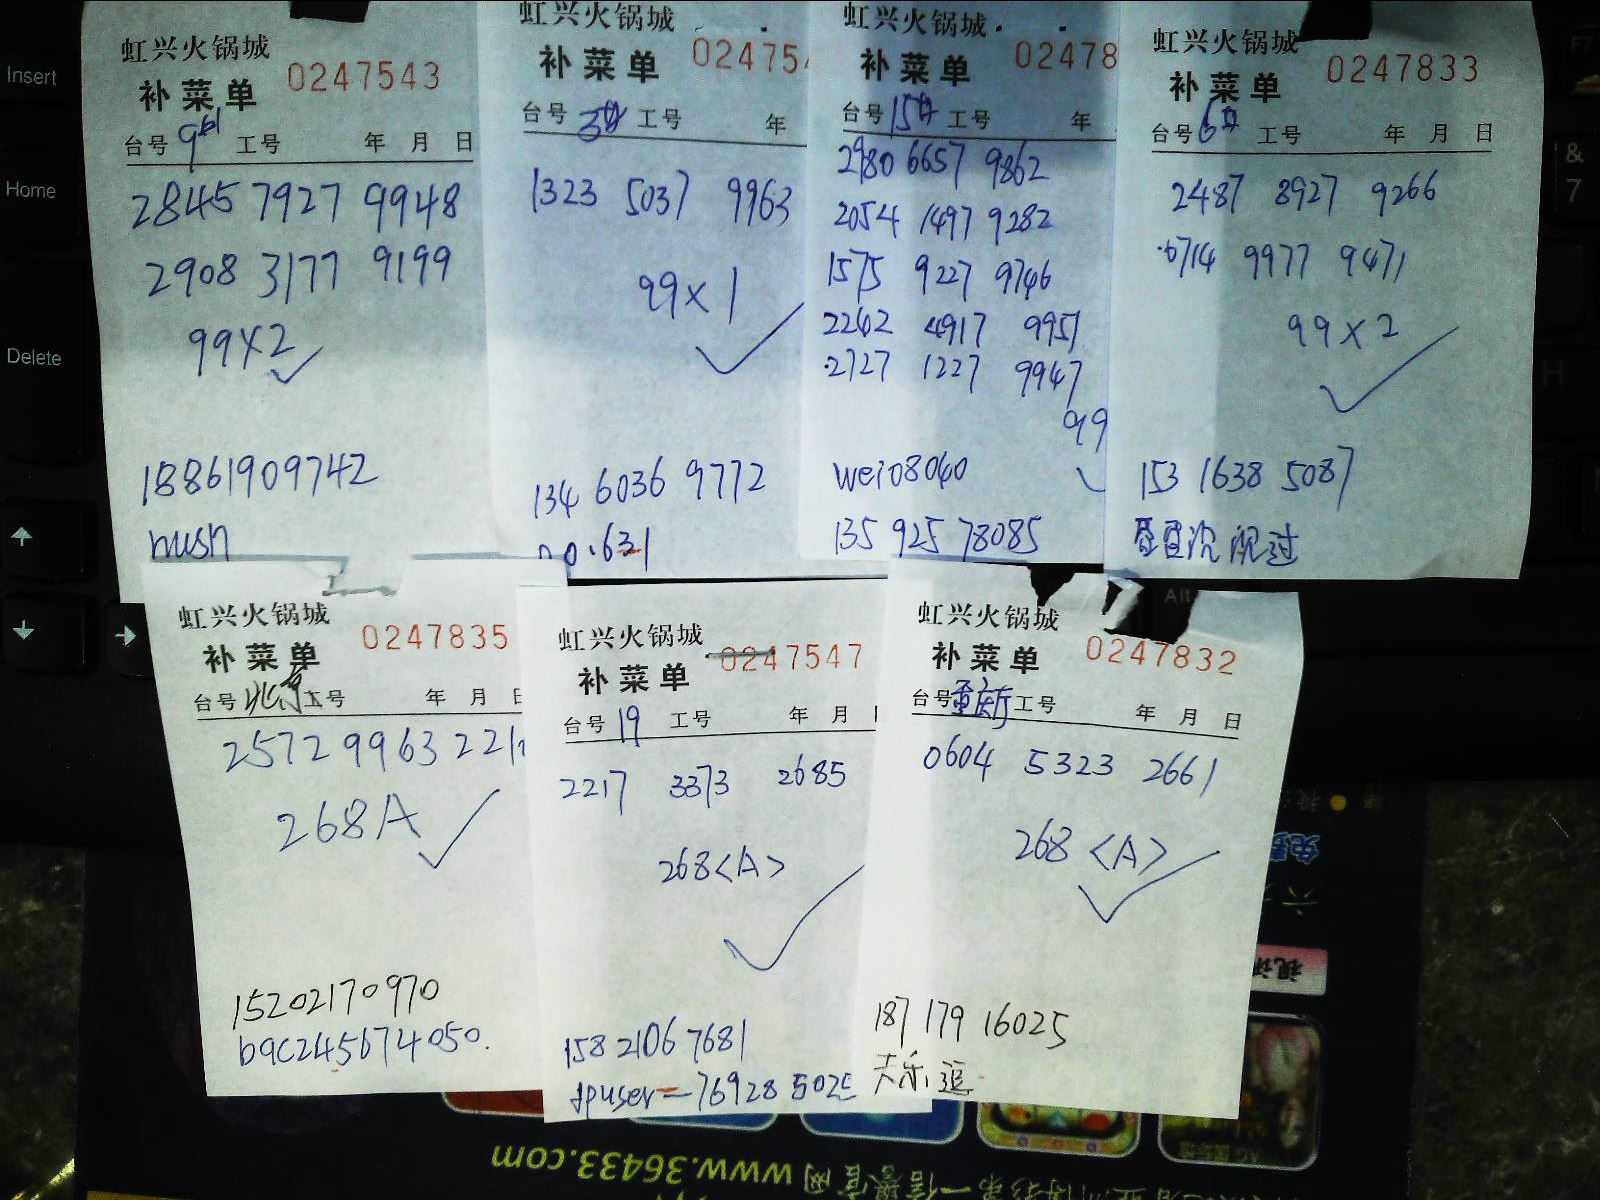 Insert
Home
Delete
虹兴火锅城
补菜单 0247543
台号 9 工号 年 月 日
2845 7927 9948
2908 3177 9199
99×2
18861909742
hush
虹兴火锅城
补菜单 02475
台号 3 工号 年
1323 5037 9963
99×1
134 6036 9772
no.631
虹兴火锅城
补菜单 02478
台号 15 工号 年
2980 6657 9862
2054 1497 9282
1575 9227 9746
2262 4917 9957
2727 1227 9947
99
wei08040
135 925 78085
虹兴火锅城
补菜单 0247833
台号 6 工号 年 月 日
2487 8927 9266
6714 9977 9471
99×2
153 1638 5087
虹兴火锅城
补菜单 0247835
台号 北京 工号 年 月
2572 9963
268A
15202170970
b9c245b74050.
虹兴火锅城
补菜单 0247547
台号 19 工号 年 月
2217 3373 2685
268<A>
158 2106 7681
dpuser-76928 5025
虹兴火锅城
补菜单 0247832
台号 工号 年 月 日
0604 5323 2661
268 <A>
187 179 16025
Alt
&
7
www.36433.com